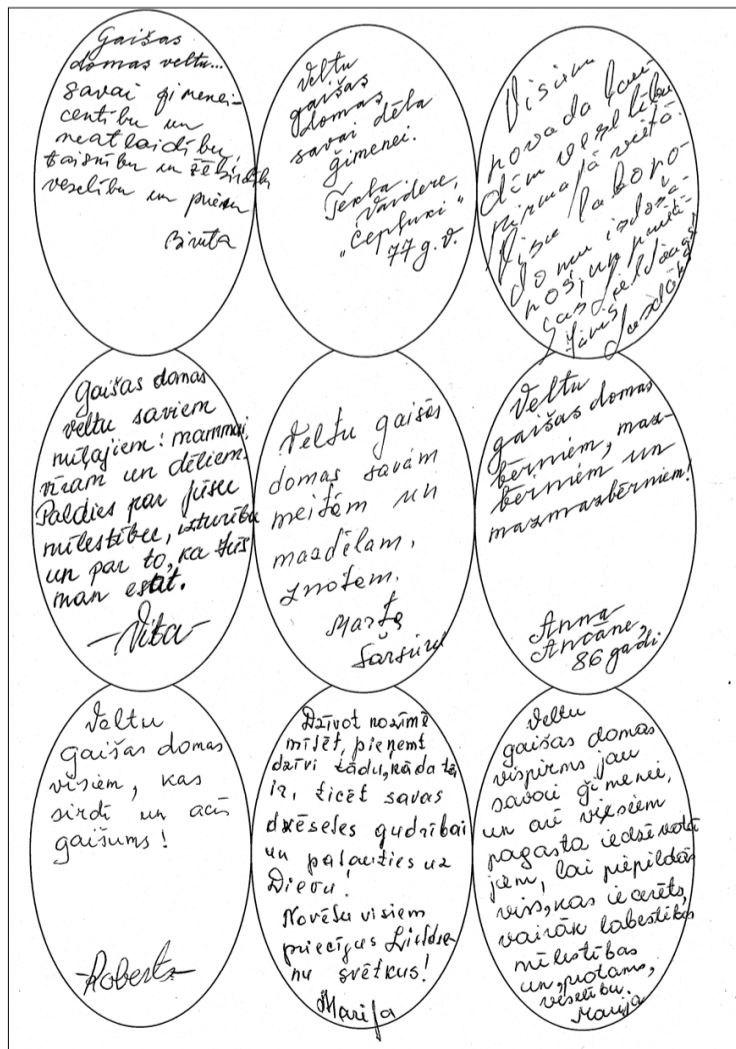 Gaišas
domas veltu...
savai ģimenei-
centību un
neatlaidību,
taisnību un žēlsirdību
veselību un prieku
Biruta
Veltu
gaišas
domas
savai dēla
ģimenei.
Tekla
Vārdere,
"Cepļuki"
77 g.v.
Visiem
novada
veselību
pirmajā vietā.
Visu labo no
domu
Jānis
Gaišas domas
veltu saviem
mīļajiem: mammai,
vīram un dēliem.
Paldies par jūsu
mīlestību, izturību
un par to, ka Jūs
man esat.
-Vita-
Veltu gaišās
domas savām
meitām un
mazdēlam,
znotam.
Marta
Veltu
gaišas domas
bērniem, maz-
bērniem un
mazmazbērniem!
Anna
Ancāne,
86 gadi
Veltu
gaišas domas
visiem, kas
sirdī un acīs
gaišums!
-Roberts-
Dzīvot nozīmē
mīlēt, pieņemt
dzīvi tādu, kāda tā
ir, ticēt savas
dvēseles gudrībai
un paļauties uz
Dievu!
Novēlu visiem
priecīgus Lieldie-
nu svētkus!
Marija
Veltu
gaišas domas
vispirms jau
savai ģimenei,
un arī visiem
pagasta iedzīvotā
jiem, lai piepildās
viss, kas iecerēts,
vairāk labestības
mīlestības
un, protams,
veselību.
Marija